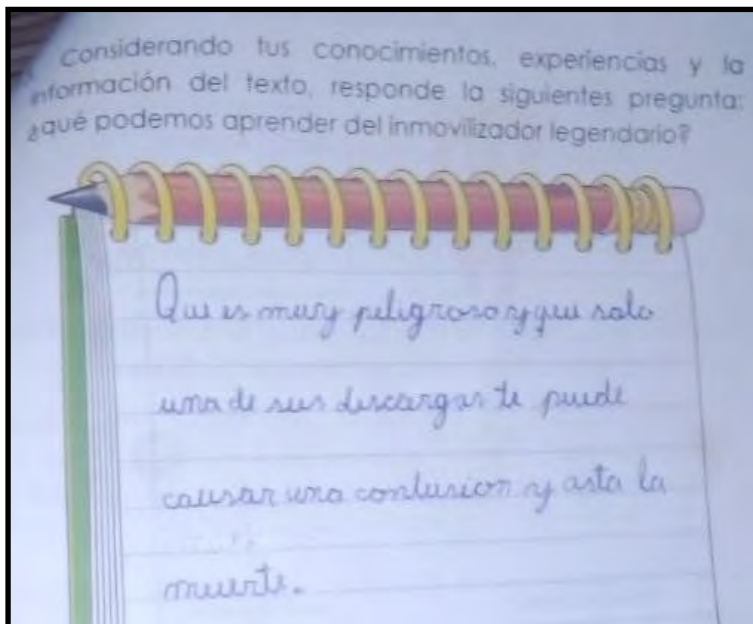 Considerando tus conocimientos, experiencias y la
información del texto, responde la siguientes pregunta:
¿qué podemos aprender del inmovilizador legendario?
Que es muy peligroso y que solo
una de sus descargas te puede
causar una conlusion y asta la
muerte.